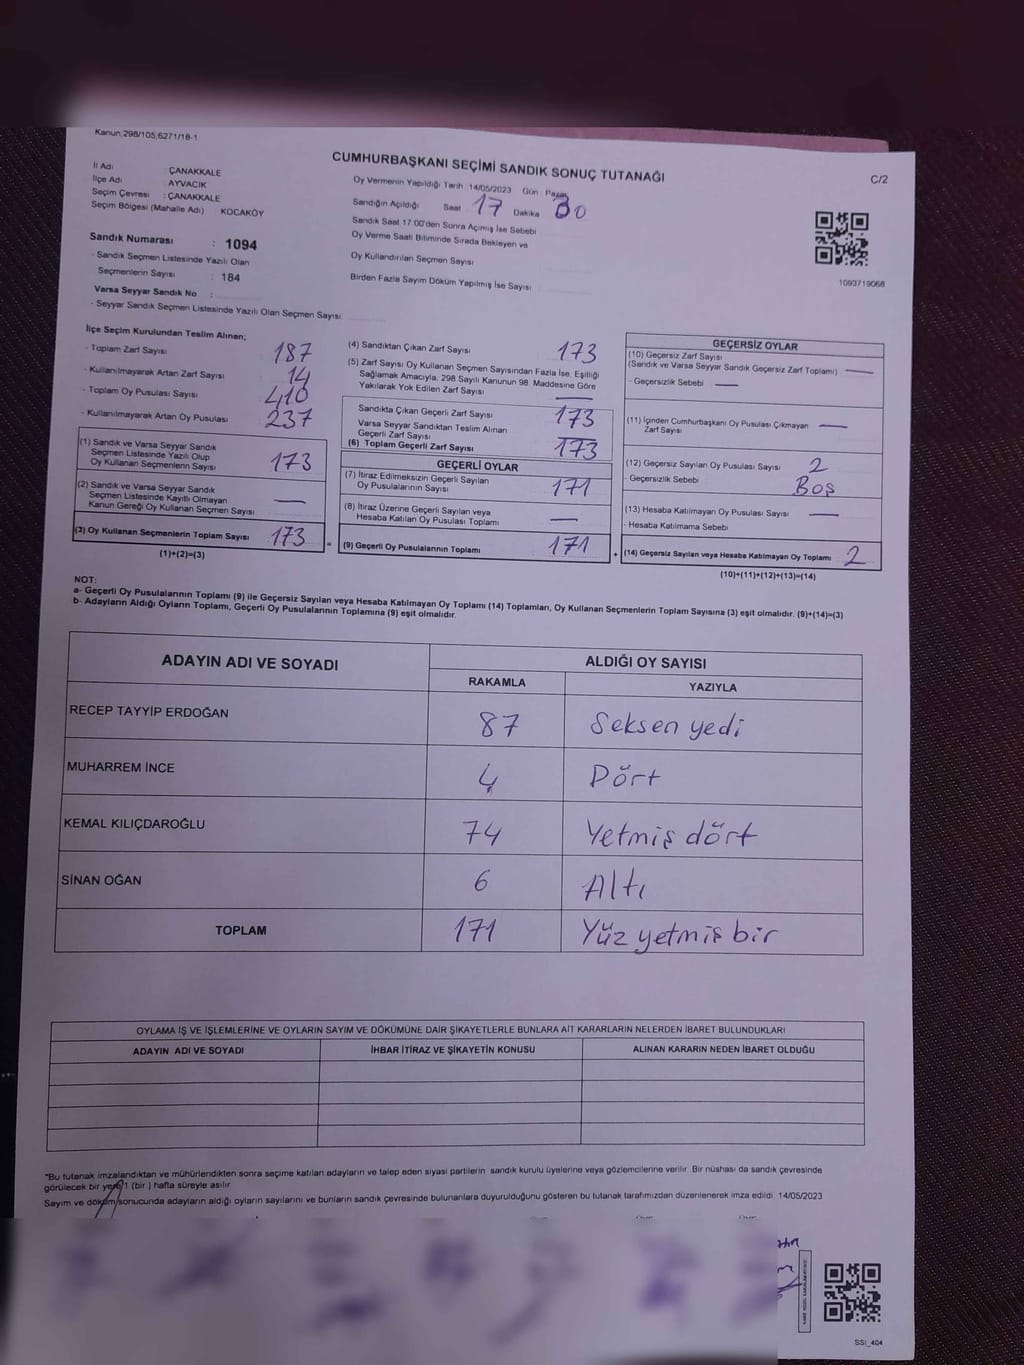 Kanun;298/105,6271/18-1
CUMHURBAŞKANI SEÇİMİ SANDIK SONUÇ TUTANAĞI
C/2
İl Adı : ÇANAKKALE
İlçe Adı : AYVACIK
Seçim Çevresi : ÇANAKKALE
Seçim Bölgesi (Mahalle Adı) : KOCAKÖY
Sandık Numarası : 1094
- Sandık Seçmen Listesinde Yazılı Olan
Seçmenlerin Sayısı : 184
Varsa Seyyar Sandık No :
- Seyyar Sandık Seçmen Listesinde Yazılı Olan Seçmen Sayısı:
Oy Vermenin Yapıldığı Tarih 14/05/2023 Gün : Pazar
Sandığın Açıldığı Saat 17 Dakika 30
Sandık Saat 17:00'den Sonra Açmış İse Sebebi
Oy Verme Saati Bitiminde Sırada Bekleyen ve
Oy Kullandırılan Seçmen Sayısı
Birden Fazla Sayım Döküm Yapılmış İse Sayısı
1093719068
İlçe Seçim Kurulundan Teslim Alınan;
- Toplam Zarf Sayısı 187
- Kullanılmayarak Artan Zarf Sayısı 14
- Toplam Oy Pusulası Sayısı 410
- Kullanılmayarak Artan Oy Pusulası 237
(1) Sandık ve Varsa Seyyar Sandık
Seçmen Listesinde Yazılı Olup
Oy Kullanan Seçmenlerin Sayısı 173
(2) Sandık ve Varsa Seyyar Sandık
Seçmen Listesinde Kayıtlı Olmayan
Kanun Gereği Oy Kullanan Seçmen Sayısı —
(3) Oy Kullanan Seçmenlerin Toplam Sayısı 173
(1)+(2)=(3)
(4) Sandıktan Çıkan Zarf Sayısı 173
(5) Zarf Sayısı Oy Kullanan Seçmen Sayısından Fazla İse, Eşitliği
Sağlamak Amacıyla, 298 Sayılı Kanunun 98. Maddesine Göre
Yakılarak Yok Edilen Zarf Sayısı —
Sandıkta Çıkan Geçerli Zarf Sayısı 173
Varsa Seyyar Sandıktan Teslim Alınan
Geçerli Zarf Sayısı
(6) Toplam Geçerli Zarf Sayısı 173
GEÇERLİ OYLAR
(7) İtiraz Edilmeksizin Geçerli Sayılan
Oy Pusulalarının Sayısı 171
(8) İtiraz Üzerine Geçerli Sayılan veya
Hesaba Katılan Oy Pusulası Toplamı —
= (9) Geçerli Oy Pusulalarının Toplamı 171
GEÇERSİZ OYLAR
(10) Geçersiz Zarf Sayısı
(Sandık ve Varsa Seyyar Sandık Geçersiz Zarf Toplamı) —
- Geçersizlik Sebebi —
(11) İçinden Cumhurbaşkanı Oy Pusulası Çıkmayan —
Zarf Sayısı
(12) Geçersiz Sayılan Oy Pusulası Sayısı 2
- Geçersizlik Sebebi Boş
(13) Hesaba Katılmayan Oy Pusulası Sayısı —
- Hesaba Katılmama Sebebi
+ (14) Geçersiz Sayılan veya Hesaba Katılmayan Oy Toplamı 2
(10)+(11)+(12)+(13)=(14)
NOT:
a- Geçerli Oy Pusulalarının Toplamı (9) ile Geçersiz Sayılan veya Hesaba Katılmayan Oy Toplamı (14) Toplamları, Oy Kullanan Seçmenlerin Toplam Sayısına (3) eşit olmalıdır. (9)+(14)=(3)
b- Adayların Aldığı Oyların Toplamı, Geçerli Oy Pusulalarının Toplamına (9) eşit olmalıdır.
ADAYIN ADI VE SOYADI ALDIĞI OY SAYISI
RAKAMLA YAZIYLA
RECEP TAYYİP ERDOĞAN 87 Seksen yedi
MUHARREM İNCE 4 Dört
KEMAL KILIÇDAROĞLU 74 Yetmiş dört
SİNAN OĞAN 6 Altı
TOPLAM 171 Yüz yetmiş bir
OYLAMA İŞ VE İŞLEMLERİNE VE OYLARIN SAYIM VE DÖKÜMÜNE DAİR ŞİKAYETLERLE BUNLARA AİT KARARLARIN NELERDEN İBARET BULUNDUKLARI
ADAYIN ADI VE SOYADI İHBAR İTİRAZ VE ŞİKAYETİN KONUSU ALINAN KARARIN NEDEN İBARET OLDUĞU
*Bu tutanak imzalandıktan ve mühürlendikten sonra seçime katılan adayların ve talep eden siyasi partilerin sandık kurulu üyelerine veya gözlemcilerine verilir. Bir nüshası da sandık çevresinde
görülecek bir yere 1 (bir ) hafta süreyle asılır.
Sayım ve döküm sonucunda adayların aldığı oyların sayılarını ve bunların sandık çevresinde bulunanlara duyurulduğunu gösteren bu tutanak tarafımızdan düzenlenerek imza edildi. 14/05/2023
SSI_404